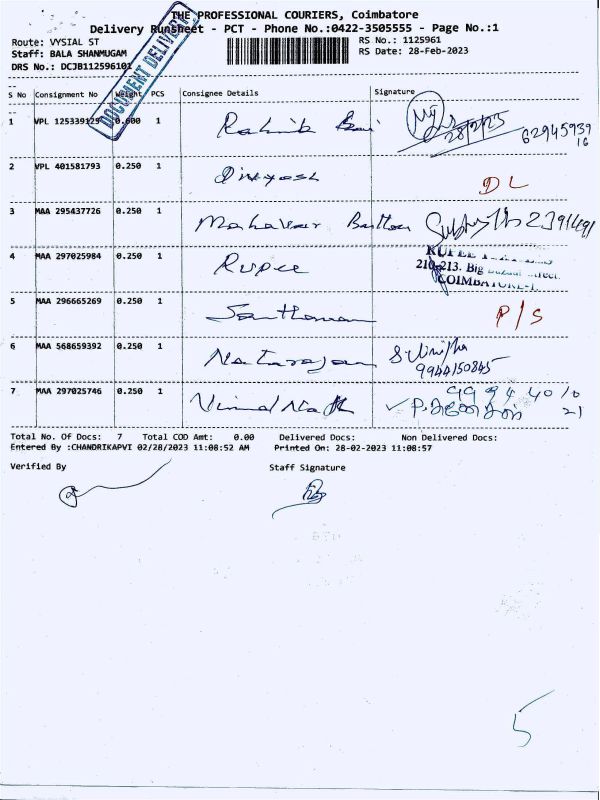 THE PROFESSIONAL COURIERS, Coimbatore
Delivery Runsheet - PCT - Phone No.:0422-3505555 - Page No.:1
Route: VYSIAL ST
RS No.: 1125961
Staff: BALA SHANMUGAM
RS Date: 28-Feb-2023
DRS No.: DCJB112596101
DOCUMENT DELIVERY
S No Consignment No Weight PCS Consignee Details Signature
1 VPL 125339129 0.600 1
28/2/23
62945939
16
2 VPL 401581793 0.250 1
DL
3 MAA 295437726 0.250 1
4 MAA 297025984 0.250 1 Rupee
RUPEE
210-213. Big Street.
COIMBATORE-1.
5 MAA 296665269 0.250 1
P/S
6 MAA 568659392 0.250 1 Natarajan
9944150845
7 MAA 297025746 0.250 1 Vimal Nath
99944010
21
Total No. Of Docs: 7 Total COD Amt: 0.00 Delivered Docs: Non Delivered Docs:
Entered By :CHANDRIKAPVI 02/28/2023 11:08:52 AM Printed On: 28-02-2023 11:08:57
Verified By Staff Signature
5